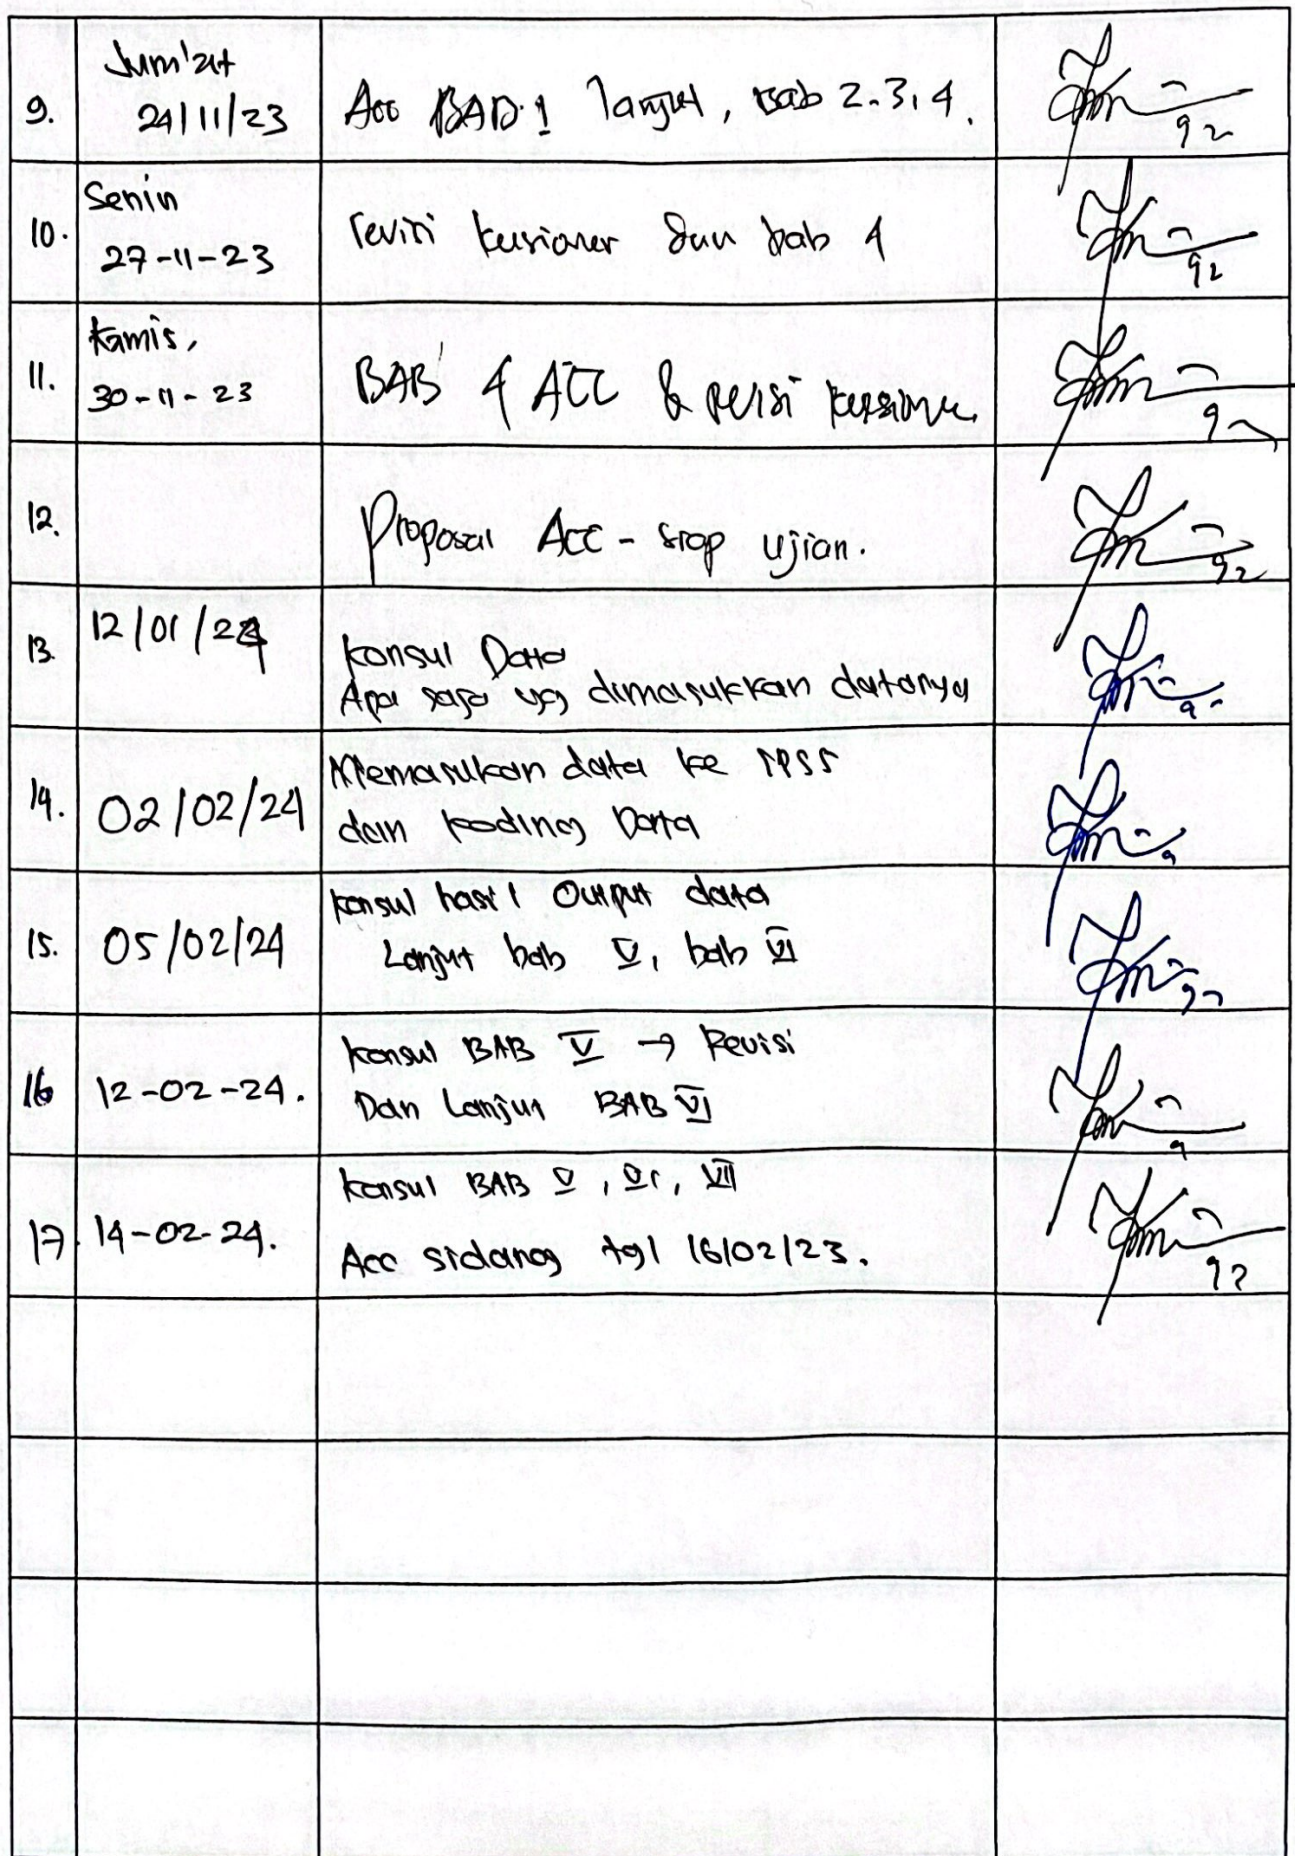 9.
Jum'at
24/11/23
Acc BAB 1 lanjut, bab 2.3.4.
10.
Senin
27-11-23
revisi kuesioner dan bab 4
11.
Kamis,
30-11-23
BAB 4 ACC & revisi kuesioner
12.
Proposal Acc - siap ujian.
13.
12/01/24
Konsul Data
Apa saja yg dimasukkan datanya
14.
02/02/24
Memasukan data ke SPSS
dan koding Data
15.
05/02/24
Konsul hasil Output data
Lanjut bab V, bab VI
16
12-02-24.
Konsul BAB V → Revisi
Dan Lanjut BAB VI
17.
14-02-24.
Konsul BAB V, VI, VII
Acc sidang tgl 16/02/23.